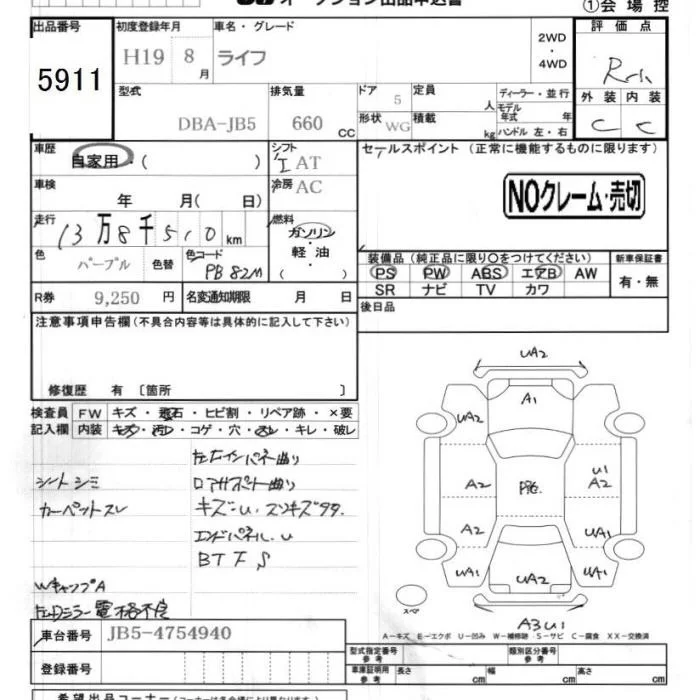 オークション出品申込書
①会場控
出品番号
5911
初度登録年月
H19 8月
車名・グレード
ライフ
2WD
4WD
評価点
外装 内装
C C
型式
DBA-JB5
排気量
660 CC
ドア 5
形状 WG
定員 人
積載 kg
ディーラー・並行
モデル年式 年
ハンドル 左・右
車歴
自家用・( )
シフト
I AT
冷房 AC
車検
年 月( 日)
セールスポイント (正常に機能するものに限ります)
NOクレーム・売切
走行
13万8千510km
燃料
ガソリン
・
軽油
・
( )
色
パープル
色替
色コード
PB82M
装備品 (純正品に限り○をつけてください)
PS PW ABS エアB AW
SR ナビ TV カワ
新車保証書
有・無
R券 9,250 円
名変通知期限 月 日
後日品
注意事項申告欄 (不具合内容等は具体的に記入して下さい)
修復歴 有 〔箇所 〕
検査員記入欄
FW キズ・飛石・ヒビ割・リペア跡・×要
内装 キズ・汚レ・コゲ・穴・スレ・キレ・破レ
シートシミ
カーペットスレ
キズ=U.スリキズ多々.
エンドパネル U
BTFS
WキャップA
車台番号 JB5-4754940
登録番号
UA2
A1
UA2
A2
U1
A2
A2
UA1
UA1
UA2
UA1
スペア
A3U1
A-キズ E-エクボ U-凹み W-補修跡 S-サビ C-腐食 XX-交換済
型式指定番号 参考
類別区分番号 参考
車庫証明用 参考
長さ cm
幅 cm
高さ cm
希望出品コーナー